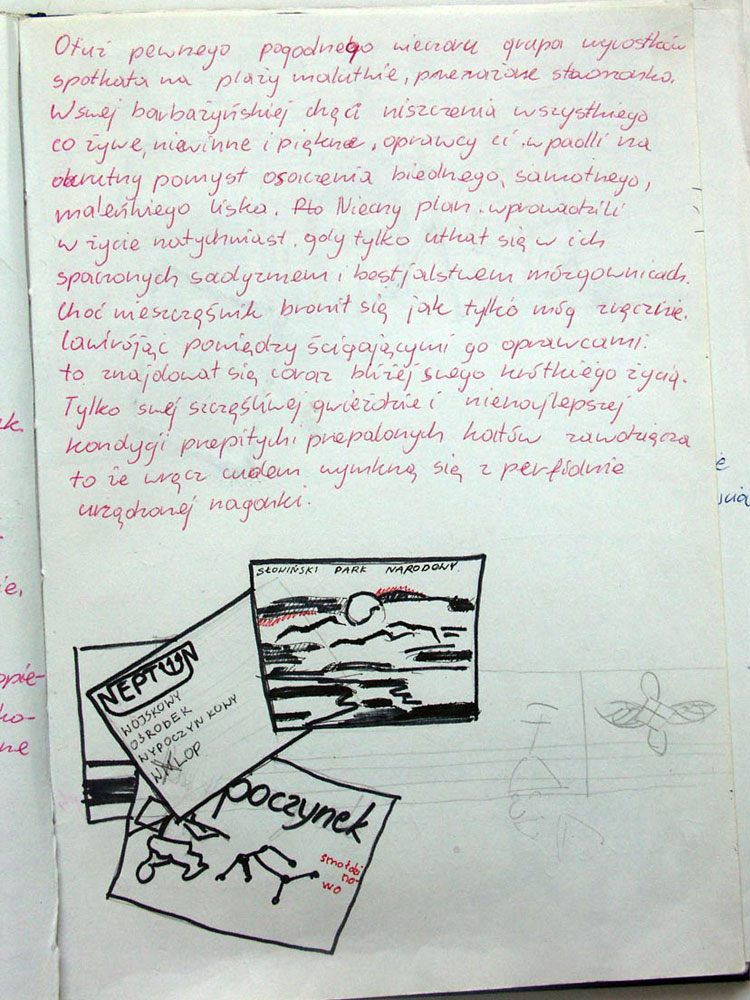 Otuż pewnego pogodnego wieczoru grupa wyrostków
spotkała na plaży malutkie, przerażone stworzonko.
W swej barbażyńskiej chęci niszczenia wszystkiego
co żywe, niewinne i piękne, oprawcy ci wpadli na
okrutny pomysł osaczenia biednego, samotnego,
maleńkiego liska. Nieczny plan wprowadzili
w życie natychmiast, gdy tylko utkał się w ich
spaczonych sadyzmem i bestjalstwem mózgownicach.
Choć nieszczęśnik bronił się jak tylko móg zręcznie.
lawirójąc pomiędzy ścigającymi go oprawcami.
to znajdował się coraz bliżej swego krótkiego życia.
Tylko swej szczęśliwej gwieździe i nienajlepszej
kondycji przepitych i przepalonych katów zawdzięcza
to że wręcz cudem wymkną się z perfidnie
urządzonej nagonki.
SŁOWIŃSKI PARK NARODOWY
NEPTUN
WOJSKOWY
OŚRODEK
WYPOCZYNKOWY
LOP
poczynek
smołdzi
no-
wo
ak.
ie,
opie-
ko-
ne
e